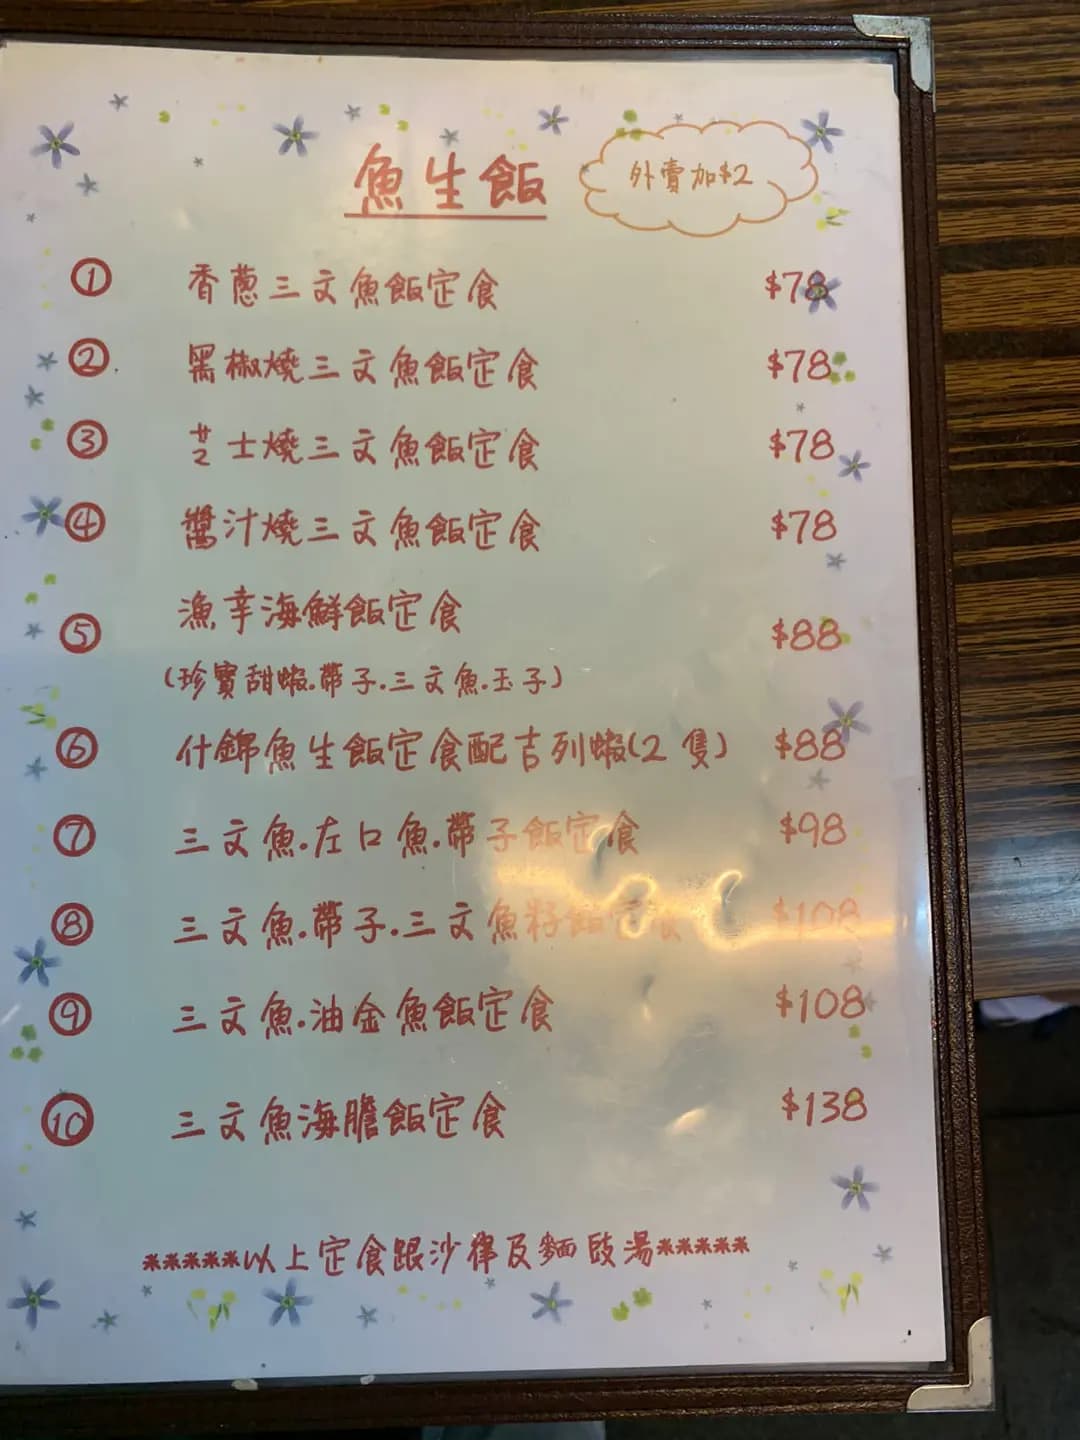 魚生飯
外賣加$2
① 香蔥三文魚飯定食 $78
② 黑椒燒三文魚飯定食 $78
③ 芝士燒三文魚飯定食 $78
④ 醬汁燒三文魚飯定食 $78
⑤ 漁幸海鮮飯定食 $88
(珍寶甜蝦.帶子.三文魚.玉子)
⑥ 什錦魚生飯定食配吉列蝦(2隻) $88
⑦ 三文魚.左口魚.帶子飯定食 $98
⑧ 三文魚.帶子.三文魚籽飯定食 $108
⑨ 三文魚.油金魚飯定食 $108
⑩ 三文魚海膽飯定食 $138
*****以上定食跟沙律及麵豉湯*****